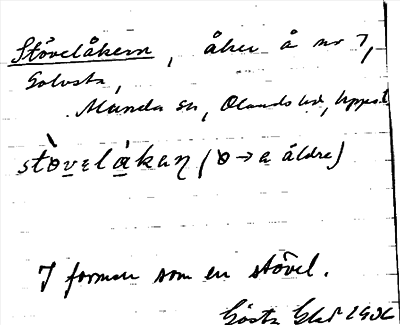 Stövelåkern, åker å nr 7,
Golvsta,
Munda sn, Olands hd, Uppsl.
stövelåkan (ö → a äldre)
I formen som en stövel.
Gösta 1936